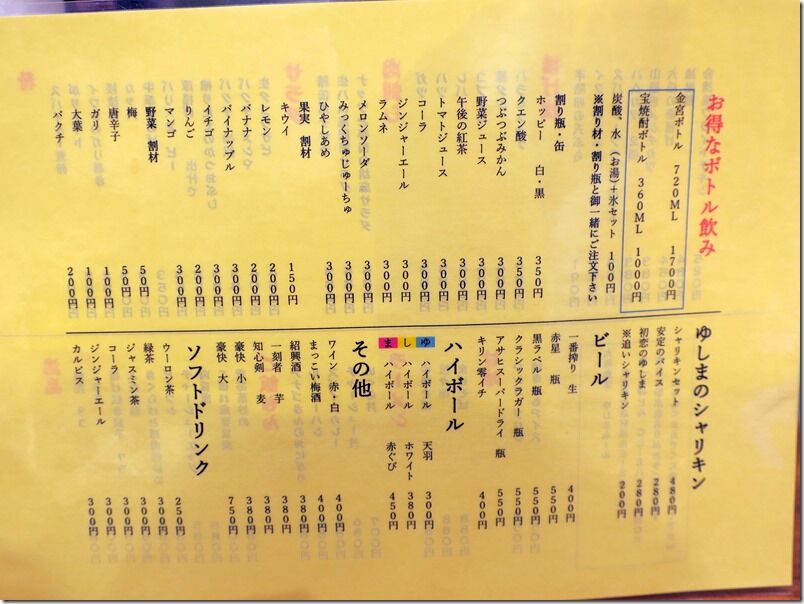 お得なボトル飲み
金宮ボトル 720ML 1700円
宝焼酎ボトル 360ML 1000円
炭酸、水、(お湯)+氷セット 100円
※割り材・割り瓶と御一緒にご注文下さい
割り瓶・缶
ホッピー 白・黒 350円
クエン酸 350円
つぶつぶみかん 300円
野菜ジュース 300円
午後の紅茶 300円
トマトジュース 300円
コーラ 300円
ジンジャーエール 300円
ラムネ 300円
メロンソーダ 300円
みっくちゅじゅーちゅ 300円
ひやしあめ 300円
果実 割材
キウイ 150円
レモン 200円
バナナ 200円
パイナップル 300円
イチゴ 300円
りんご 200円
マンゴ 300円
野菜 割材
梅 50円
唐辛子 50円
ガリ 100円
大葉 100円
パクチ 200円
ゆしまのシャリキン
シャリキンセット 480円
安定のバイス 280円
初恋のゆしま 280円
※追いシャリキン 200円
ビール
一番搾り 生 400円
赤星 瓶 550円
黒ラベル 瓶 550円
クラシックラガー 瓶 550円
アサヒスーパードライ 瓶 550円
キリン零イチ 400円
ハイボール
ゆ ハイボール 天羽 300円
し ハイボール ホワイト 380円
ま ハイボール 赤ぐび 450円
その他
ワイン 赤・白 400円
まっこい梅酒 400円
紹興酒 380円
一刻者 芋 380円
知心剣 麦 380円
豪快 小 380円
豪快 大 750円
ソフトドリンク
ウーロン茶 250円
緑茶 300円
ジャスミン茶 300円
コーラ 300円
ジンジャーエール 300円
カルピス 300円